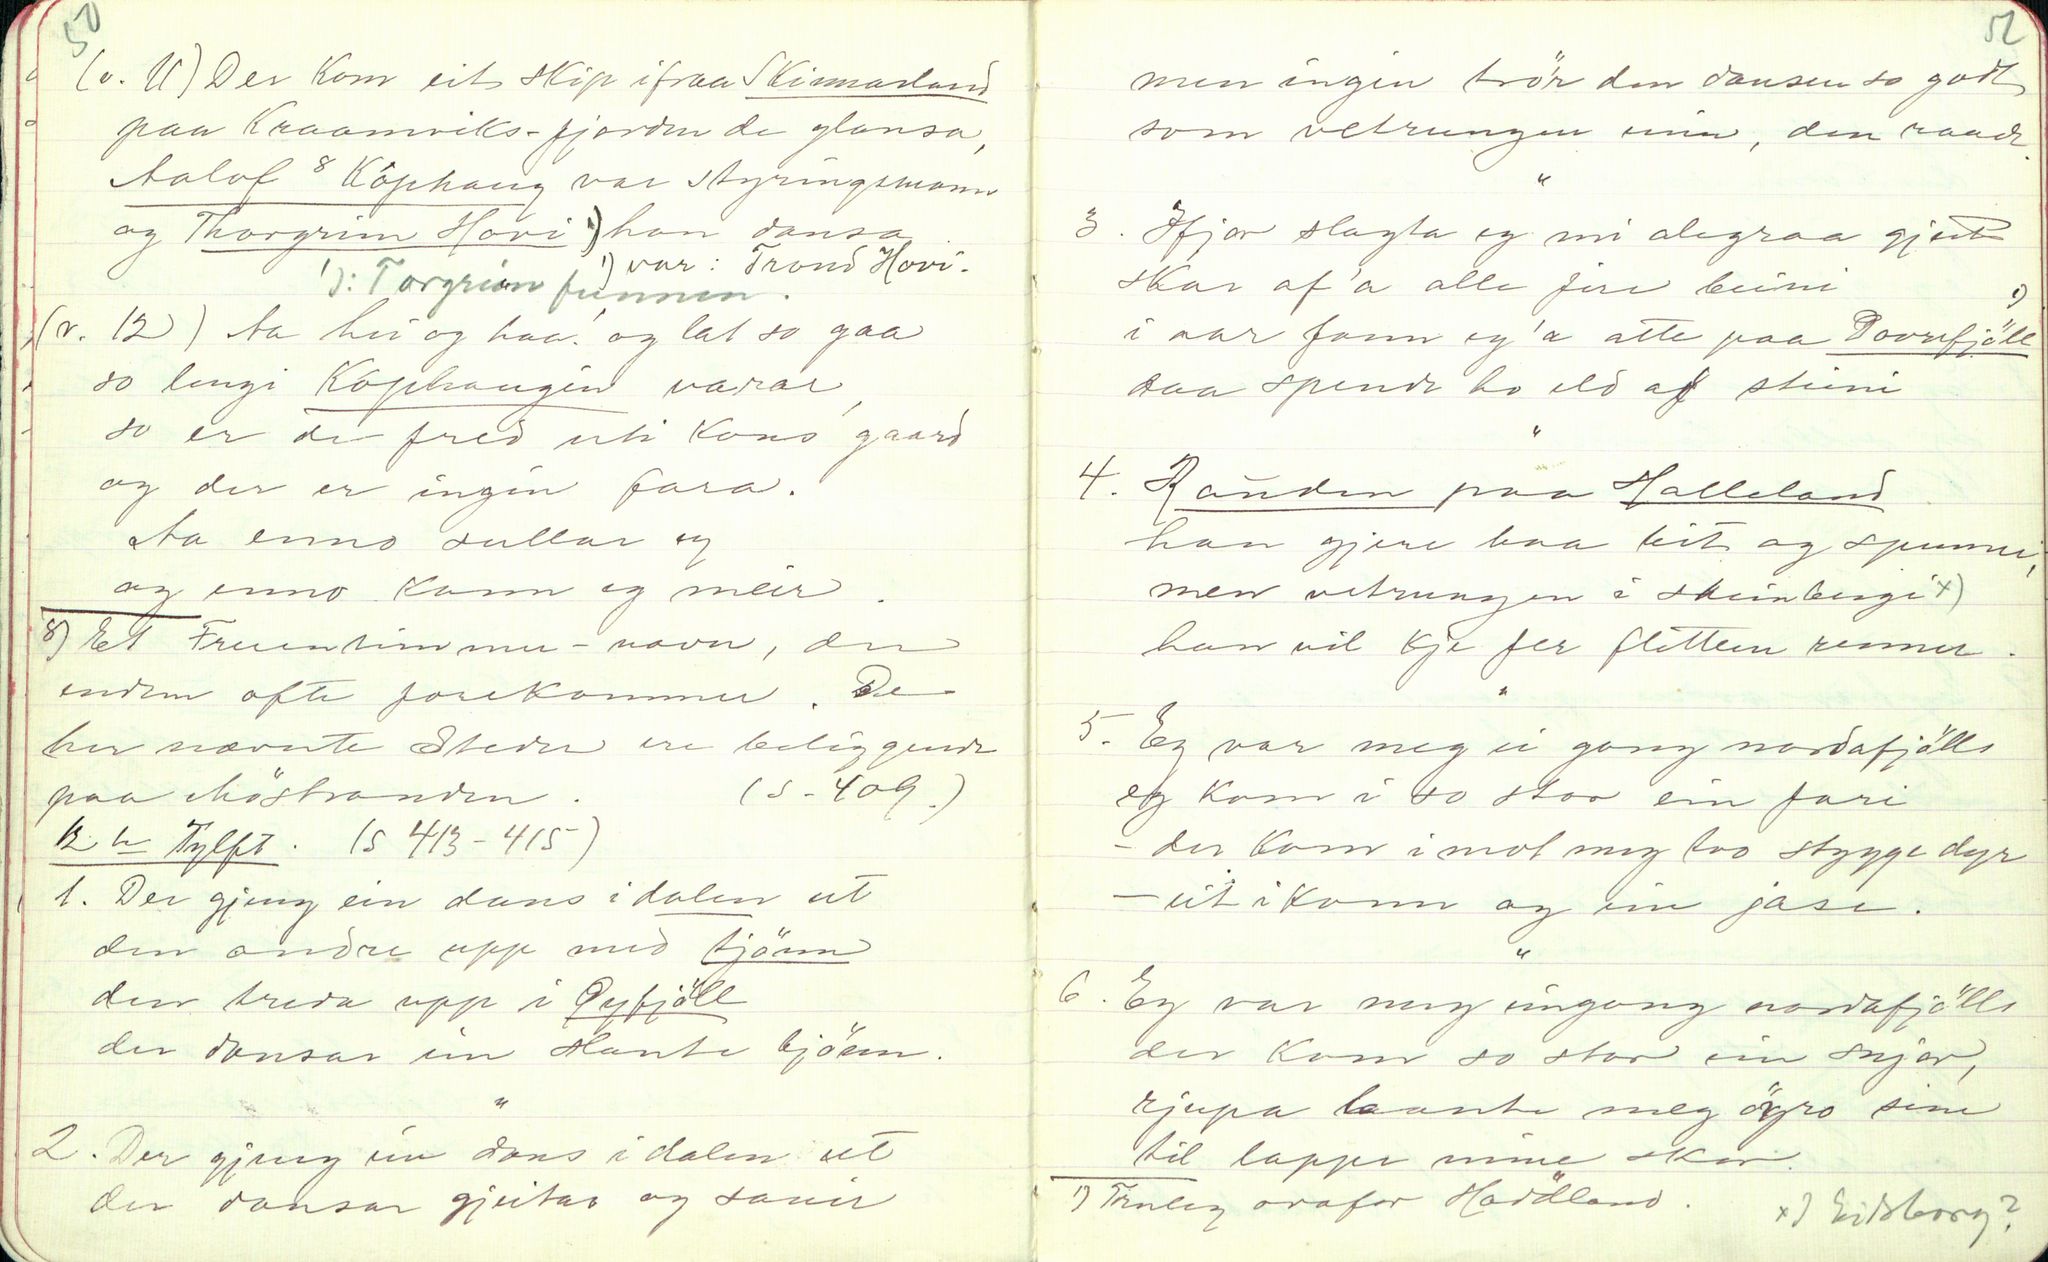 50
(v. 11) Der kom eit skip ifraa Skinnarland
paa Kraamviks-fjorden de glansa,
Aalof 8 Köphaug var styringsmann
og Thorgrim Hovi 1) han dansa
1) var: Trond Hovi.
1): Torgrim funnen.
(v. 12) Aa hei og haa! og lat so gaa
so lengi Köphaugin varar,
so er de fred uti Kons gaard
og der er ingin fara.
Aa enno sullar eg
og enno kann eg meir.
8) Et Fruentimmer-navn, der
endnu ofte forekommer. De
her nævnte Steder ere beliggende
paa Möstranden. (S. 409.)
12te Tylft. (S 413-415)
1. Der gjeng ein dans i dalen ut
den andre upp med tjönn
den treda upp i Gyfjöll
der dansar ein skante bjönn.
"
2. Der gjeng ein dans i dalen ut
der dansar gjeitar og sauir
51
men ingin trör den dansen so godt
som vetrungen min, den raude.
"
3. Ifjor slagta eg mi alegraa gjeit
skar af'a alle fire beini
i aar fann eg'a atte paa Dovrefjöll 1)
daa spende ho eld af steini
"
4. Rauden paa Halleland
han gjere baa bit og spenne,
men vetrungen i Steinbergi x)
han vil kje fer flittein renne.
"
5. Eg var meg ei gong nordafjölls
eg kom i so stor ein fari
- der kom imot meg two stygge dyr
- eit ikonn og ein jase.
"
6. Eg var meg eingong nordafjölls
der kom so stor ein snjor,
rjupa laante meg öyro sine
til lappe mine skor.
1) Truleg ovafor Haddland.
x) Eidsborg?